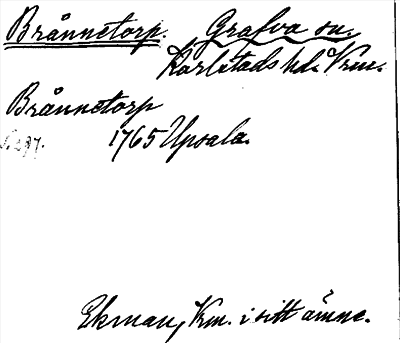 Brånnetorp. Grafva sn.
Karlstads hd. Vrm.
Brånnetorp
1765 Upsala.
S. 297.
Ekman, Vrm. i sitt ämne.